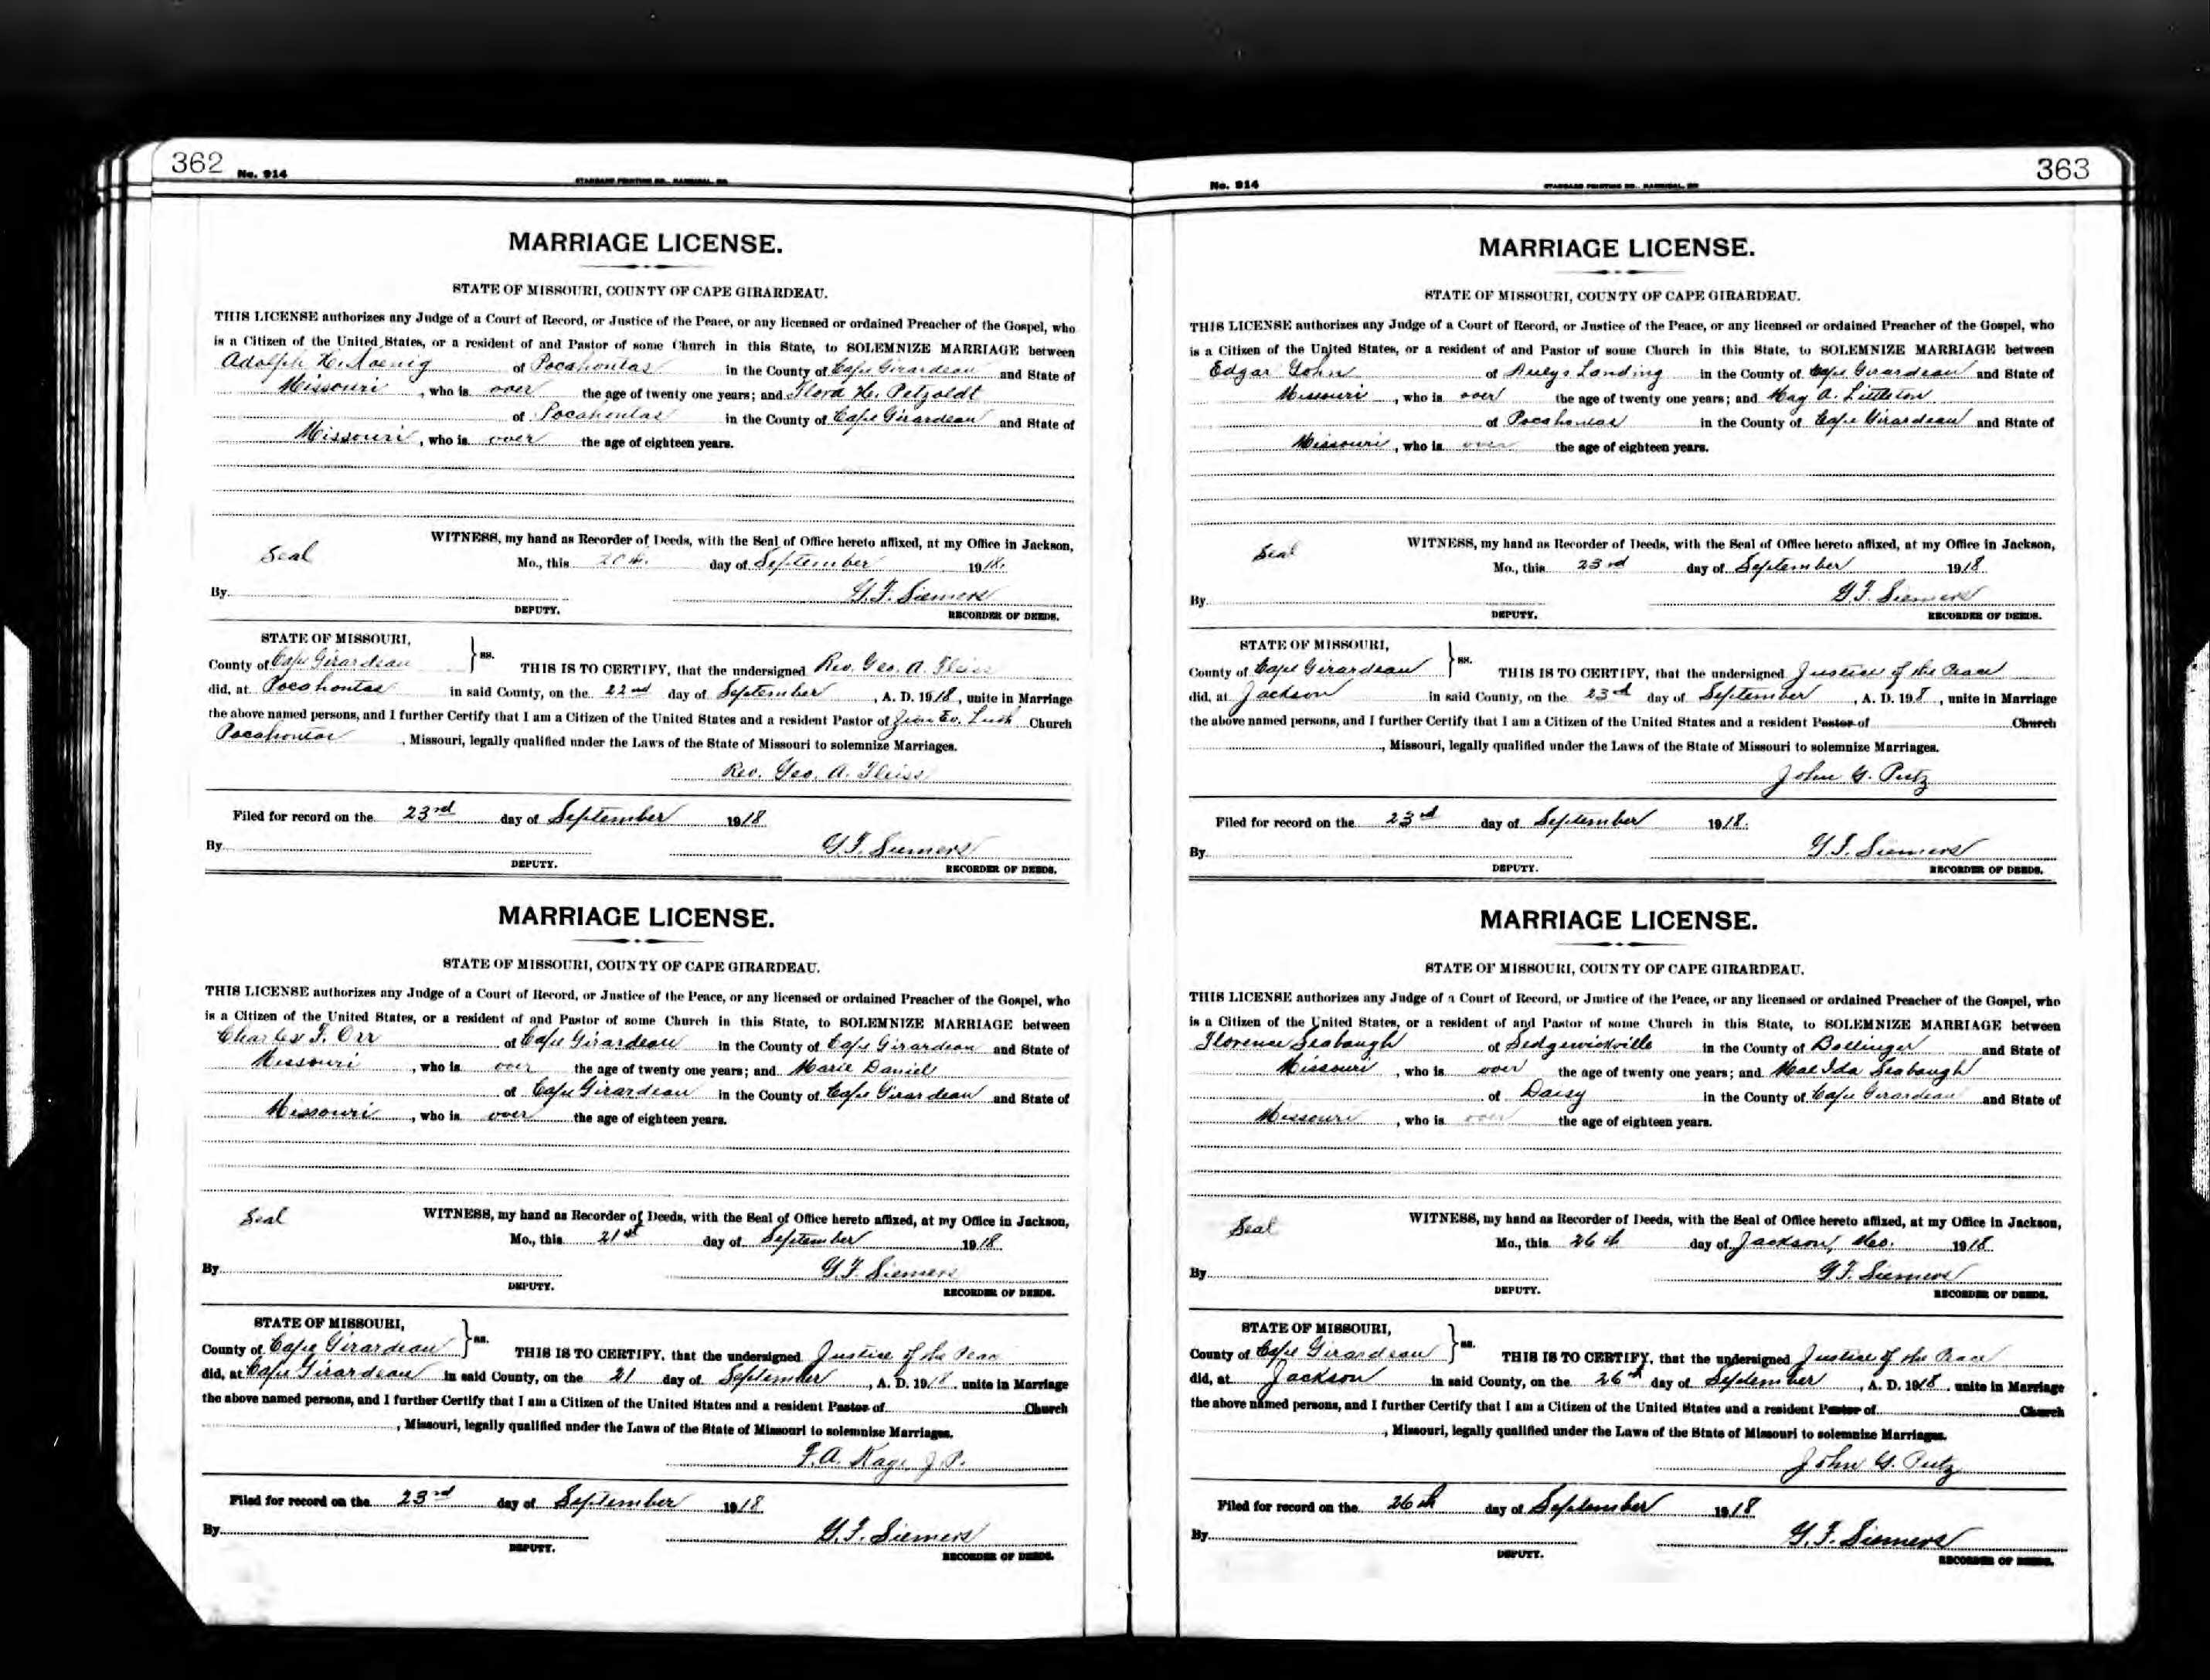 362 No. 914 STANDARD PRINTING CO., HANNIBAL, MO.
MARRIAGE LICENSE.
STATE OF MISSOURI, COUNTY OF CAPE GIRARDEAU.
THIS LICENSE authorizes any Judge of a Court of Record, or Justice of the Peace, or any licensed or ordained Preacher of the Gospel, who
is a Citizen of the United States, or a resident of and Pastor of some Church in this State, to SOLEMNIZE MARRIAGE between
Adolph H. Koenig of Pocahontas in the County of Cape Girardeau and State of
Missouri, who is over the age of twenty one years; and Flora H. Petzoldt
of Pocahontas in the County of Cape Girardeau and State of
Missouri, who is over the age of eighteen years.
Seal WITNESS, my hand as Recorder of Deeds, with the Seal of Office hereto affixed, at my Office in Jackson,
Mo., this 20th. day of September 1918.
By G.F. Siemers
DEPUTY. RECORDER OF DEEDS.
STATE OF MISSOURI,
County of Cape Girardeau } ss. THIS IS TO CERTIFY, that the undersigned Rev. Geo. A. Fleiss
did, at Pocahontas in said County, on the 22nd day of September, A. D. 1918, unite in Marriage
the above named persons, and I further Certify that I am a Citizen of the United States and a resident Pastor of Zion Ev. Luth Church
Pocahontas, Missouri, legally qualified under the Laws of the State of Missouri to solemnize Marriages.
Rev. Geo. A. Fleiss
Filed for record on the 23rd day of September 1918
By G.F. Siemers
DEPUTY. RECORDER OF DEEDS.
MARRIAGE LICENSE.
STATE OF MISSOURI, COUNTY OF CAPE GIRARDEAU.
THIS LICENSE authorizes any Judge of a Court of Record, or Justice of the Peace, or any licensed or ordained Preacher of the Gospel, who
is a Citizen of the United States, or a resident of and Pastor of some Church in this State, to SOLEMNIZE MARRIAGE between
Charles F. Orr of Cape Girardeau in the County of Cape Girardeau and State of
Missouri, who is over the age of twenty one years; and Marie Daniels
of Cape Girardeau in the County of Cape Girardeau and State of
Missouri, who is over the age of eighteen years.
Seal WITNESS, my hand as Recorder of Deeds, with the Seal of Office hereto affixed, at my Office in Jackson,
Mo., this 21st day of September 1918
By G.F. Siemers
DEPUTY. RECORDER OF DEEDS.
STATE OF MISSOURI,
County of Cape Girardeau } ss. THIS IS TO CERTIFY, that the undersigned Justice of the Peace
did, at Cape Girardeau in said County, on the 21 day of September, A. D. 1918, unite in Marriage
the above named persons, and I further Certify that I am a Citizen of the United States and a resident Pastor of Church
, Missouri, legally qualified under the Laws of the State of Missouri to solemnize Marriages.
F.A. Kage J.P.
Filed for record on the 23rd day of September 1918
By G.F. Siemers
DEPUTY. RECORDER OF DEEDS.
No. 914 STANDARD PRINTING CO., HANNIBAL, MO. 363
MARRIAGE LICENSE.
STATE OF MISSOURI, COUNTY OF CAPE GIRARDEAU.
THIS LICENSE authorizes any Judge of a Court of Record, or Justice of the Peace, or any licensed or ordained Preacher of the Gospel, who
is a Citizen of the United States, or a resident of and Pastor of some Church in this State, to SOLEMNIZE MARRIAGE between
Edgar John of Neelys Landing in the County of Cape Girardeau and State of
Missouri, who is over the age of twenty one years; and May A. Littleton
of Pocahontas in the County of Cape Girardeau and State of
Missouri, who is over the age of eighteen years.
Seal WITNESS, my hand as Recorder of Deeds, with the Seal of Office hereto affixed, at my Office in Jackson,
Mo., this 23rd day of September 1918
By G.F. Siemers
DEPUTY. RECORDER OF DEEDS.
STATE OF MISSOURI,
County of Cape Girardeau } ss. THIS IS TO CERTIFY, that the undersigned Justice of the Peace
did, at Jackson in said County, on the 23rd day of September, A. D. 198, unite in Marriage
the above named persons, and I further Certify that I am a Citizen of the United States and a resident Pastor of Church
, Missouri, legally qualified under the Laws of the State of Missouri to solemnize Marriages.
John G. Putz
Filed for record on the 23rd day of September 1918.
By G.F. Siemers
DEPUTY. RECORDER OF DEEDS.
MARRIAGE LICENSE.
STATE OF MISSOURI, COUNTY OF CAPE GIRARDEAU.
THIS LICENSE authorizes any Judge of a Court of Record, or Justice of the Peace, or any licensed or ordained Preacher of the Gospel, who
is a Citizen of the United States, or a resident of and Pastor of some Church in this State, to SOLEMNIZE MARRIAGE between
Florence Seabaugh of Sedgewickville in the County of Bollinger and State of
Missouri, who is over the age of twenty one years; and Mae Ida Seabaugh
of Daisy in the County of Cape Girardeau and State of
Missouri, who is over the age of eighteen years.
Seal WITNESS, my hand as Recorder of Deeds, with the Seal of Office hereto affixed, at my Office in Jackson,
Mo., this 26th day of Jackson, Mo. 1918
By G.F. Siemers
DEPUTY. RECORDER OF DEEDS.
STATE OF MISSOURI,
County of Cape Girardeau } ss. THIS IS TO CERTIFY, that the undersigned Justice of the Peace
did, at Jackson in said County, on the 26th day of September, A. D. 1918, unite in Marriage
the above named persons, and I further Certify that I am a Citizen of the United States and a resident Pastor of Church
, Missouri, legally qualified under the Laws of the State of Missouri to solemnize Marriages.
John G. Putz
Filed for record on the 26th day of September 1918
By G.F. Siemers
DEPUTY. RECORDER OF DEEDS.